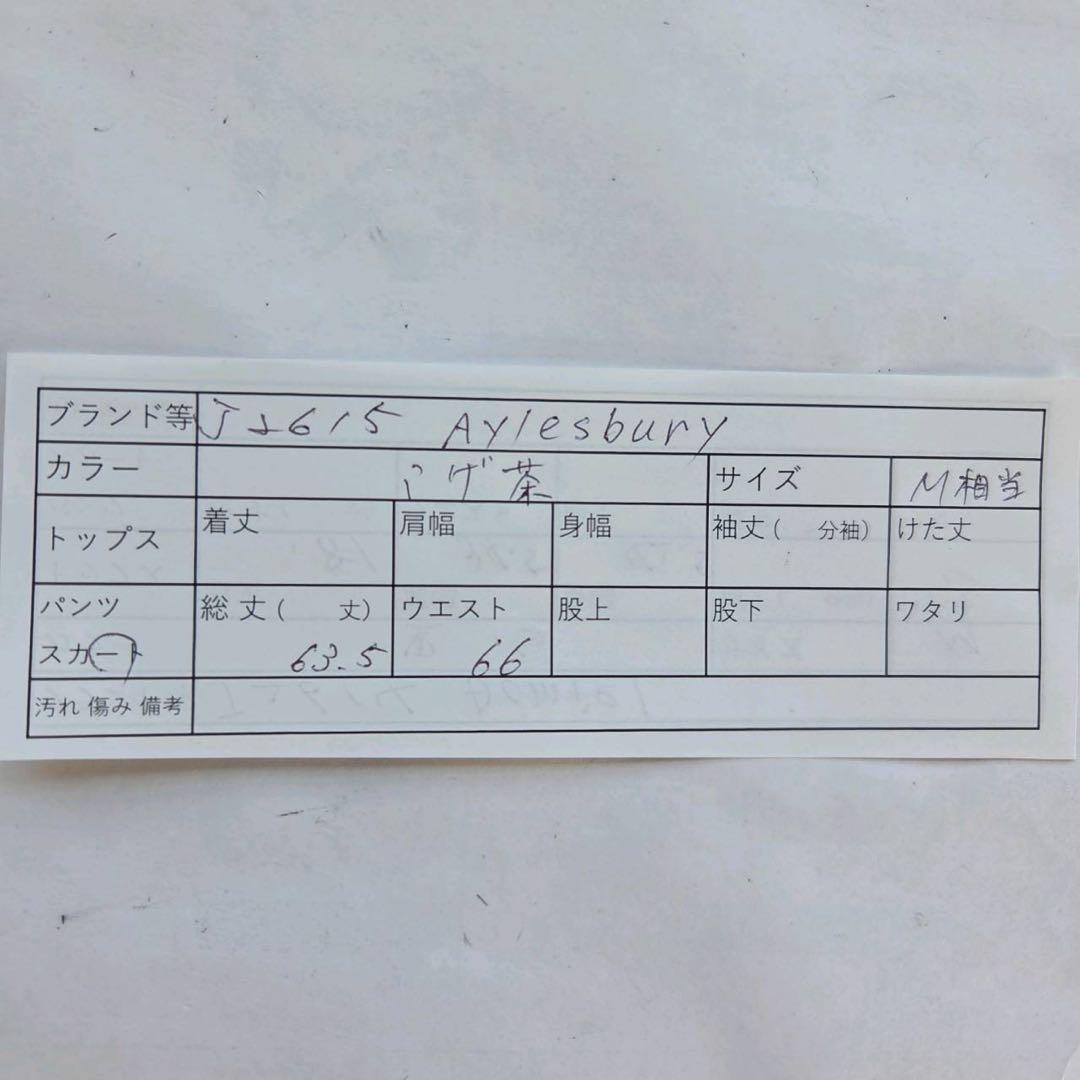 ブランド等 Jょ615 Aylesbury
カラー こげ茶 サイズ M相当
トップス 着丈 肩幅 身幅 袖丈( 分袖) けた丈
パンツ 総丈( 丈) ウエスト 股上 股下 ワタリ
スカート 63.5 66
汚れ 傷み 備考